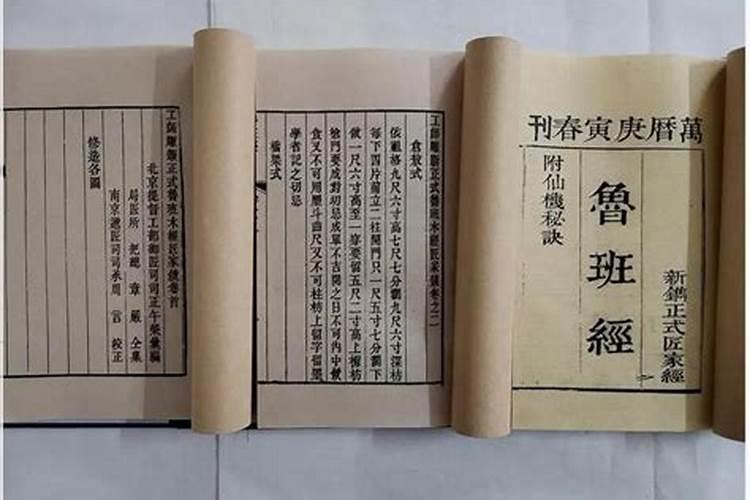 萬曆庚寅春刊
新鐫正式匠家經
魯班經
附仙機秘訣
工師雕斵正式魯班木經匠家鏡卷之二
倉敖式
依祖格九尺六寸高七尺七分濶九尺六寸深枋
每下四片前立二柱開門只一尺五寸七分濶下
做一尺六寸高至一穿要留五尺二寸高上楣枋
鎗門要成對切忌成單不吉開之日不可內中飲
食又不可用墨斗曲尺又不可柱枋上留字留墨
學者記之切忌
橋梁式
工師雕斵正式魯班木經匠家鏡卷首
北京提督工部御匠司司正午榮彙編
局匠所 把總 章 嚴 仝集
南京遞匠司司承周 言 校正
修造各圖